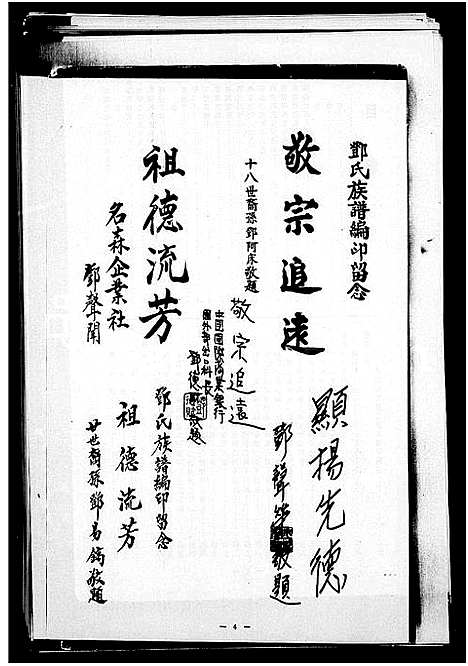 鄧氏族譜編印留念
敬宗追遠
十八世裔孫鄧阿床敬題
祖德流芳
名森企業社
鄧聲開
顯揚先德
鄧聲
敬題
敬宗追遠
中国国際商業銀行
國外部出口科長
鄧德
敬題
鄧氏族譜編印留念
祖德流芳
廿世裔孫鄧易鎬敬題
— 4 —